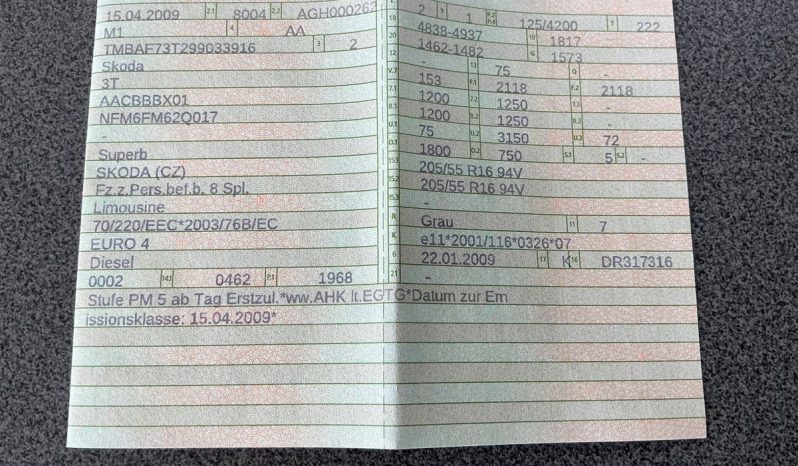 15.04.2009 2.1 8004 2.2 AGH000262
M1 4 AA
TMBAF73T299033916 3 2
Skoda
3T
AACBBBX01
NFM6FM62Q017
-
Superb
SKODA (CZ)
Fz.z.Pers.bef.b. 8 Spl.
Limousine
70/220/EEC*2003/76B/EC
EURO 4
Diesel
0002 14.1 0462 P.1 1968
Stufe PM 5 ab Tag Erstzul.*ww.AHK lt.EGTG*Datum zur Em
issionsklasse: 15.04.2009*
2 9 1 P.2 P.4 125/4200 T 222
18 4838-4937 19 1817
20 1462-1482 G 1573
12 - 13 75 Q -
V.7 153 F.1 2118 F.2 2118
7.1 1200 7.2 1250 7.3 -
8.1 1200 8.2 1250 8.3 -
U.1 75 U.2 3150 U.3 72
O.1 1800 O.2 750 S.1 5 S.2 -
15.1 205/55 R16 94V
15.2 205/55 R16 94V
15.3 -
R Grau 11 7
K e11*2001/116*0326*07
6 22.01.2009 17 K 16 DR317316
21 -